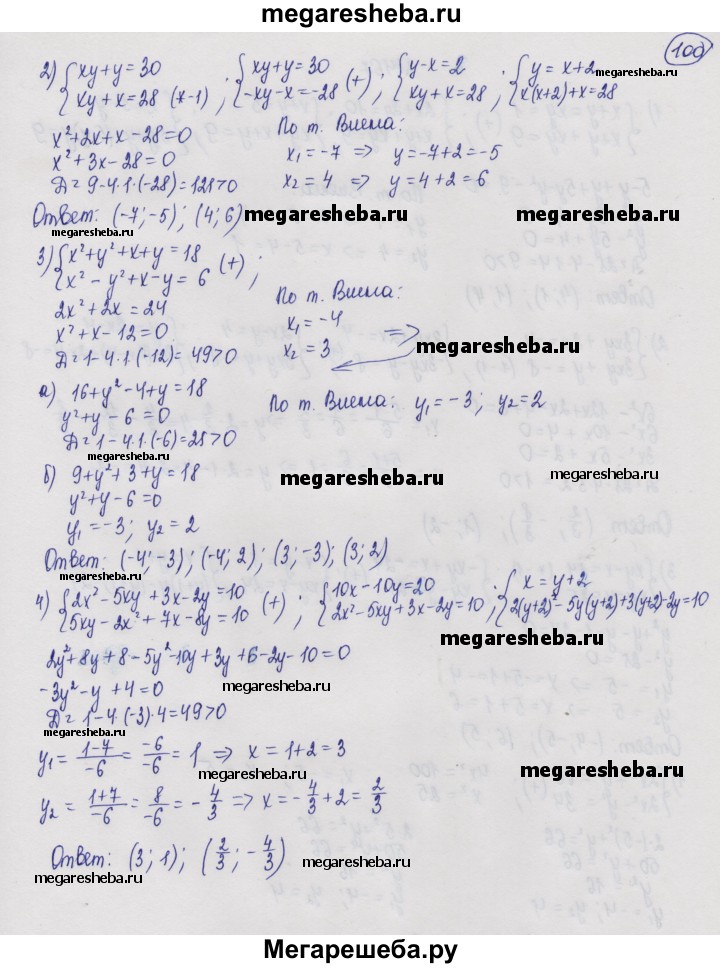 megaresheba.ru
100
2) {xy+y=30 ; {xy+y=30 (+) ; {y-x=2 ; {y=x+2
{xy+x=28 (x-1) {-xy-x=-28 {xy+x=28 {x(x+2)+x=28
megaresheba.ru
x²+2x+x-28=0
x²+3x-28=0
Д=9-4.1.(-28)=121>0
По т. Виета:
x₁=-7 => y=-7+2=-5
x₂=4 => y=4+2=6
Ответ: (-7;-5); (4;6)
megaresheba.ru
megaresheba.ru
3) {x²+y²+x+y=18 (+) ;
{x²-y²+x-y=6
2x²+2x=24
x²+x-12=0
Д=1-4.1.(-12)=49>0
По т. Виета:
x₁=-4 =>
x₂=3
megaresheba.ru
а) 16+y²-4+y=18
y²+y-6=0
Д=1-4.1.(-6)=25>0
По т. Виета: y₁=-3; y₂=2
б) 9+y²+3+y=18
y²+y-6=0
y₁=-3; y₂=2
megaresheba.ru
megaresheba.ru
Ответ: (-4;-3); (-4;2); (3;-3); (3;2)
megaresheba.ru
4) {2x²-5xy+3x-2y=10 (+) ; {10x-10y=20 ; {x=y+2
{5xy-2x²+7x-8y=10 {2x²-5xy+3x-2y=10 {2(y+2)²-5y(y+2)+3(y+2)-2y=10
megaresheba.ru
2y²+8y+8-5y²-10y+3y+6-2y-10=0
-3y²-y+4=0
megaresheba.ru
Д=1-4.(-3).4=49>0
y₁=(1-7)/(-6)=(-6)/(-6)=1 => x=1+2=3
megaresheba.ru
megaresheba.ru
y₂=(1+7)/(-6)=8/(-6)=-4/3 => x=-4/3+2=2/3
megaresheba.ru
Ответ: (3;1); (2/3;-4/3)
megaresheba.ru
megaresheba.ru
Мегарешеба.ру